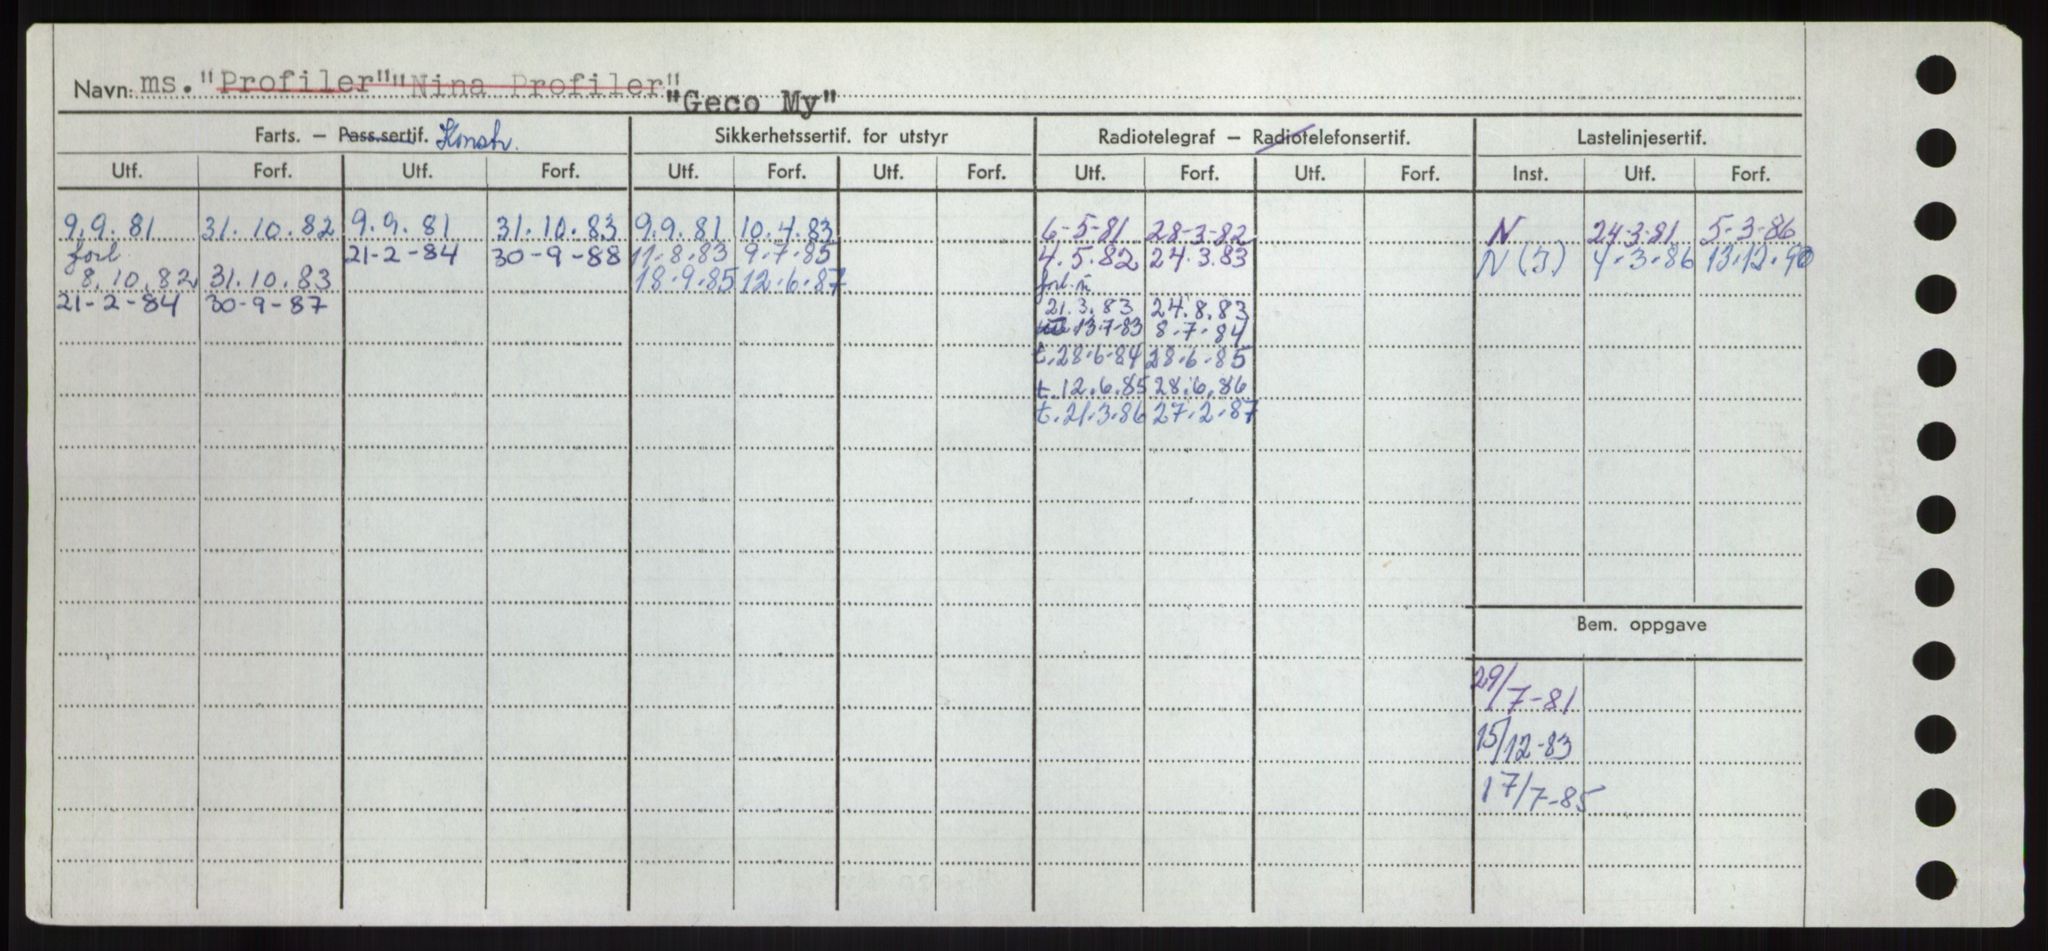 Navn: ms. "Profiler" "Nina Profiler" "Geco My"
Farts. – Pass.sertif. Konstr. Sikkerhetssertif. for utstyr Radiotelegraf – Radiotelefonsertif. Lastelinjesertif.
Utf. Forf. Utf. Forf. Utf. Forf. Utf. Forf. Utf. Forf. Utf. Forf. Inst. Utf. Forf.
9.9.81 31.10.82 9.9.81 31.10.83 9.9.81 10.4.83 6-5-81 28-3-82 N 24-3-81 5-3-86
forl. 21-2-84 30-9-88 11.8.83 9.7.85 4.5.82 24.3.83 N (J) 4.3.86 13.12.90
8.10.82 31.10.83 18.9.85 12.6.87 forl.
21-2-84 30-9-87 21.3.83 24.8.83
13.7-83 8.7.84
t.28.6-84 28.6.85
t.12.6.85 28.6.86
t.21.3.86 27.2.87
Bem. oppgave
29/7-81
15/12-83
17/7-85